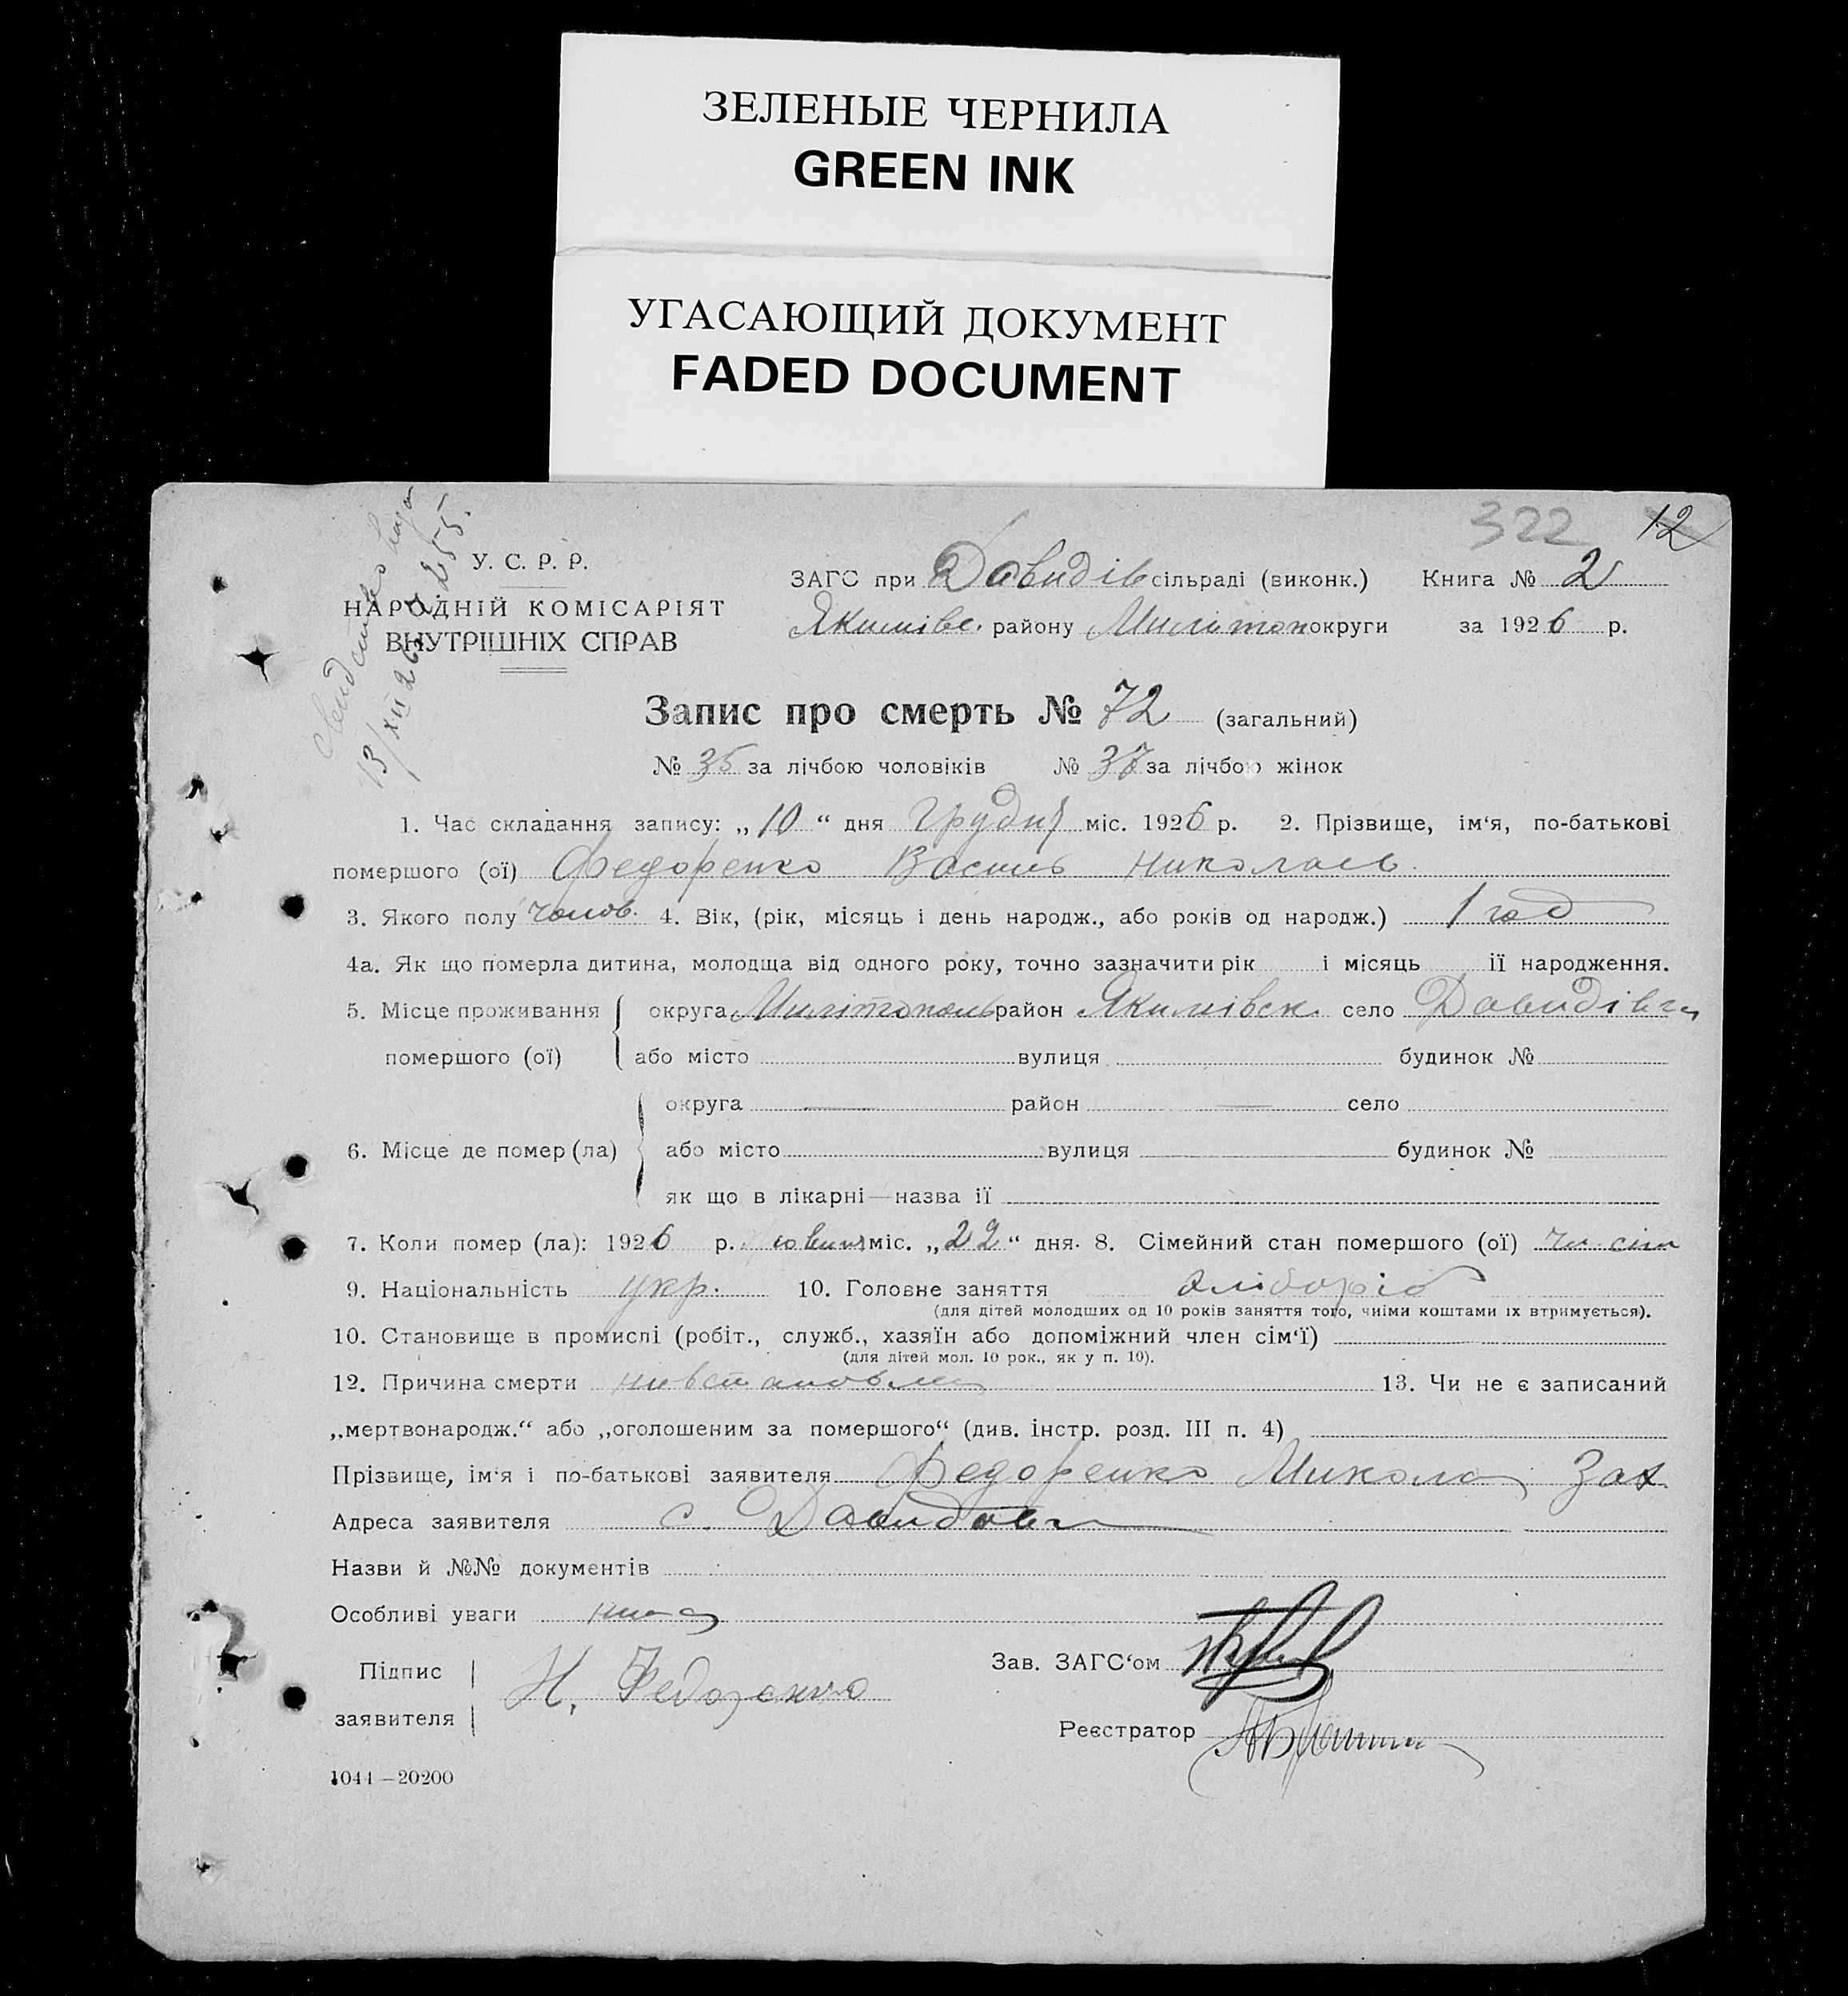 ЗЕЛЕНЫЕ ЧЕРНИЛА
GREEN INK
УГАСАЮЩИЙ ДОКУМЕНТ
FADED DOCUMENT
322 12
У. С. Р. Р.
НАРОДНІЙ КОМІСАРІЯТ
ВНУТРІШНІХ СПРАВ
13/XII 26
255
ЗАГС при Давидів сільраді (виконк.) Книга № 2
Якимівс. району округи за 1926 р.
Запис про смерть № 72 (загальний)
№ 35 за лічбою чоловіків № 37 за лічбою жінок
1. Час складання запису: „10“ дня Грудня міс. 1926 р. 2. Прізвище, ім‘я, по-батькові
помершого (ої) Федоренко Василь Николаев.
3. Якого полу чолов. 4. Вік, (рік, місяць і день народж., або років од народж.) 1 год
4а. Як що померла дитина, молодща від одного року, точно зазначити рік і місяць її народження.
5. Місце проживання округа район Якимівськ. село Давидівка
помершого (ої) або місто вулиця будинок №
округа район село
6. Місце де помер (ла) або місто вулиця будинок №
як що в лікарні—назва її
7. Коли помер (ла): 1926 р. міс. „22“ дня. 8. Сімейний стан помершого (ої)
9. Національність укр. 10. Головне заняття
(для дітей молодших од 10 років заняття того, чиїми коштами їх втримується).
10. Становище в промислі (робіт., служб., хазяїн або допоміжний член сім‘ї)
(для дітей мол. 10 рок., як у п. 10).
12. Причина смерти 13. Чи не є записаний
„мертвонародж.“ або „оголошеним за помершого“ (див. інстр. розд. III п. 4)
Прізвище, ім‘я і по-батькові заявителя Федоренко Микола Зах
Адреса заявителя с. Давидовка
Назви й №№ документів
Особливі уваги
Підпис
заявителя
Н. Федоренко
Зав. ЗАГС‘ом
Реєстратор
1044—20200